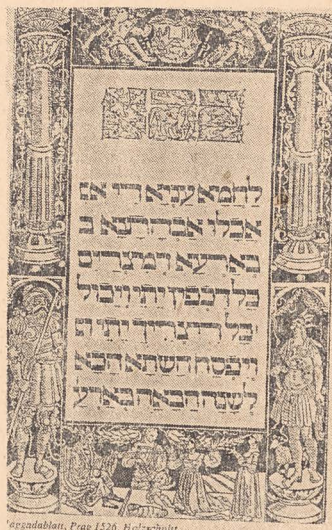 לחמא עניא די אכ
אכלו אבהתנא ב
בארעא דמצרים
כל דכפין ייתי וייכול
וכל דצריך ייתי וי
ויפסח השתא הכא
לשנה הבאה בארע
aggadablatt, Prag 1526, Holzschnitt